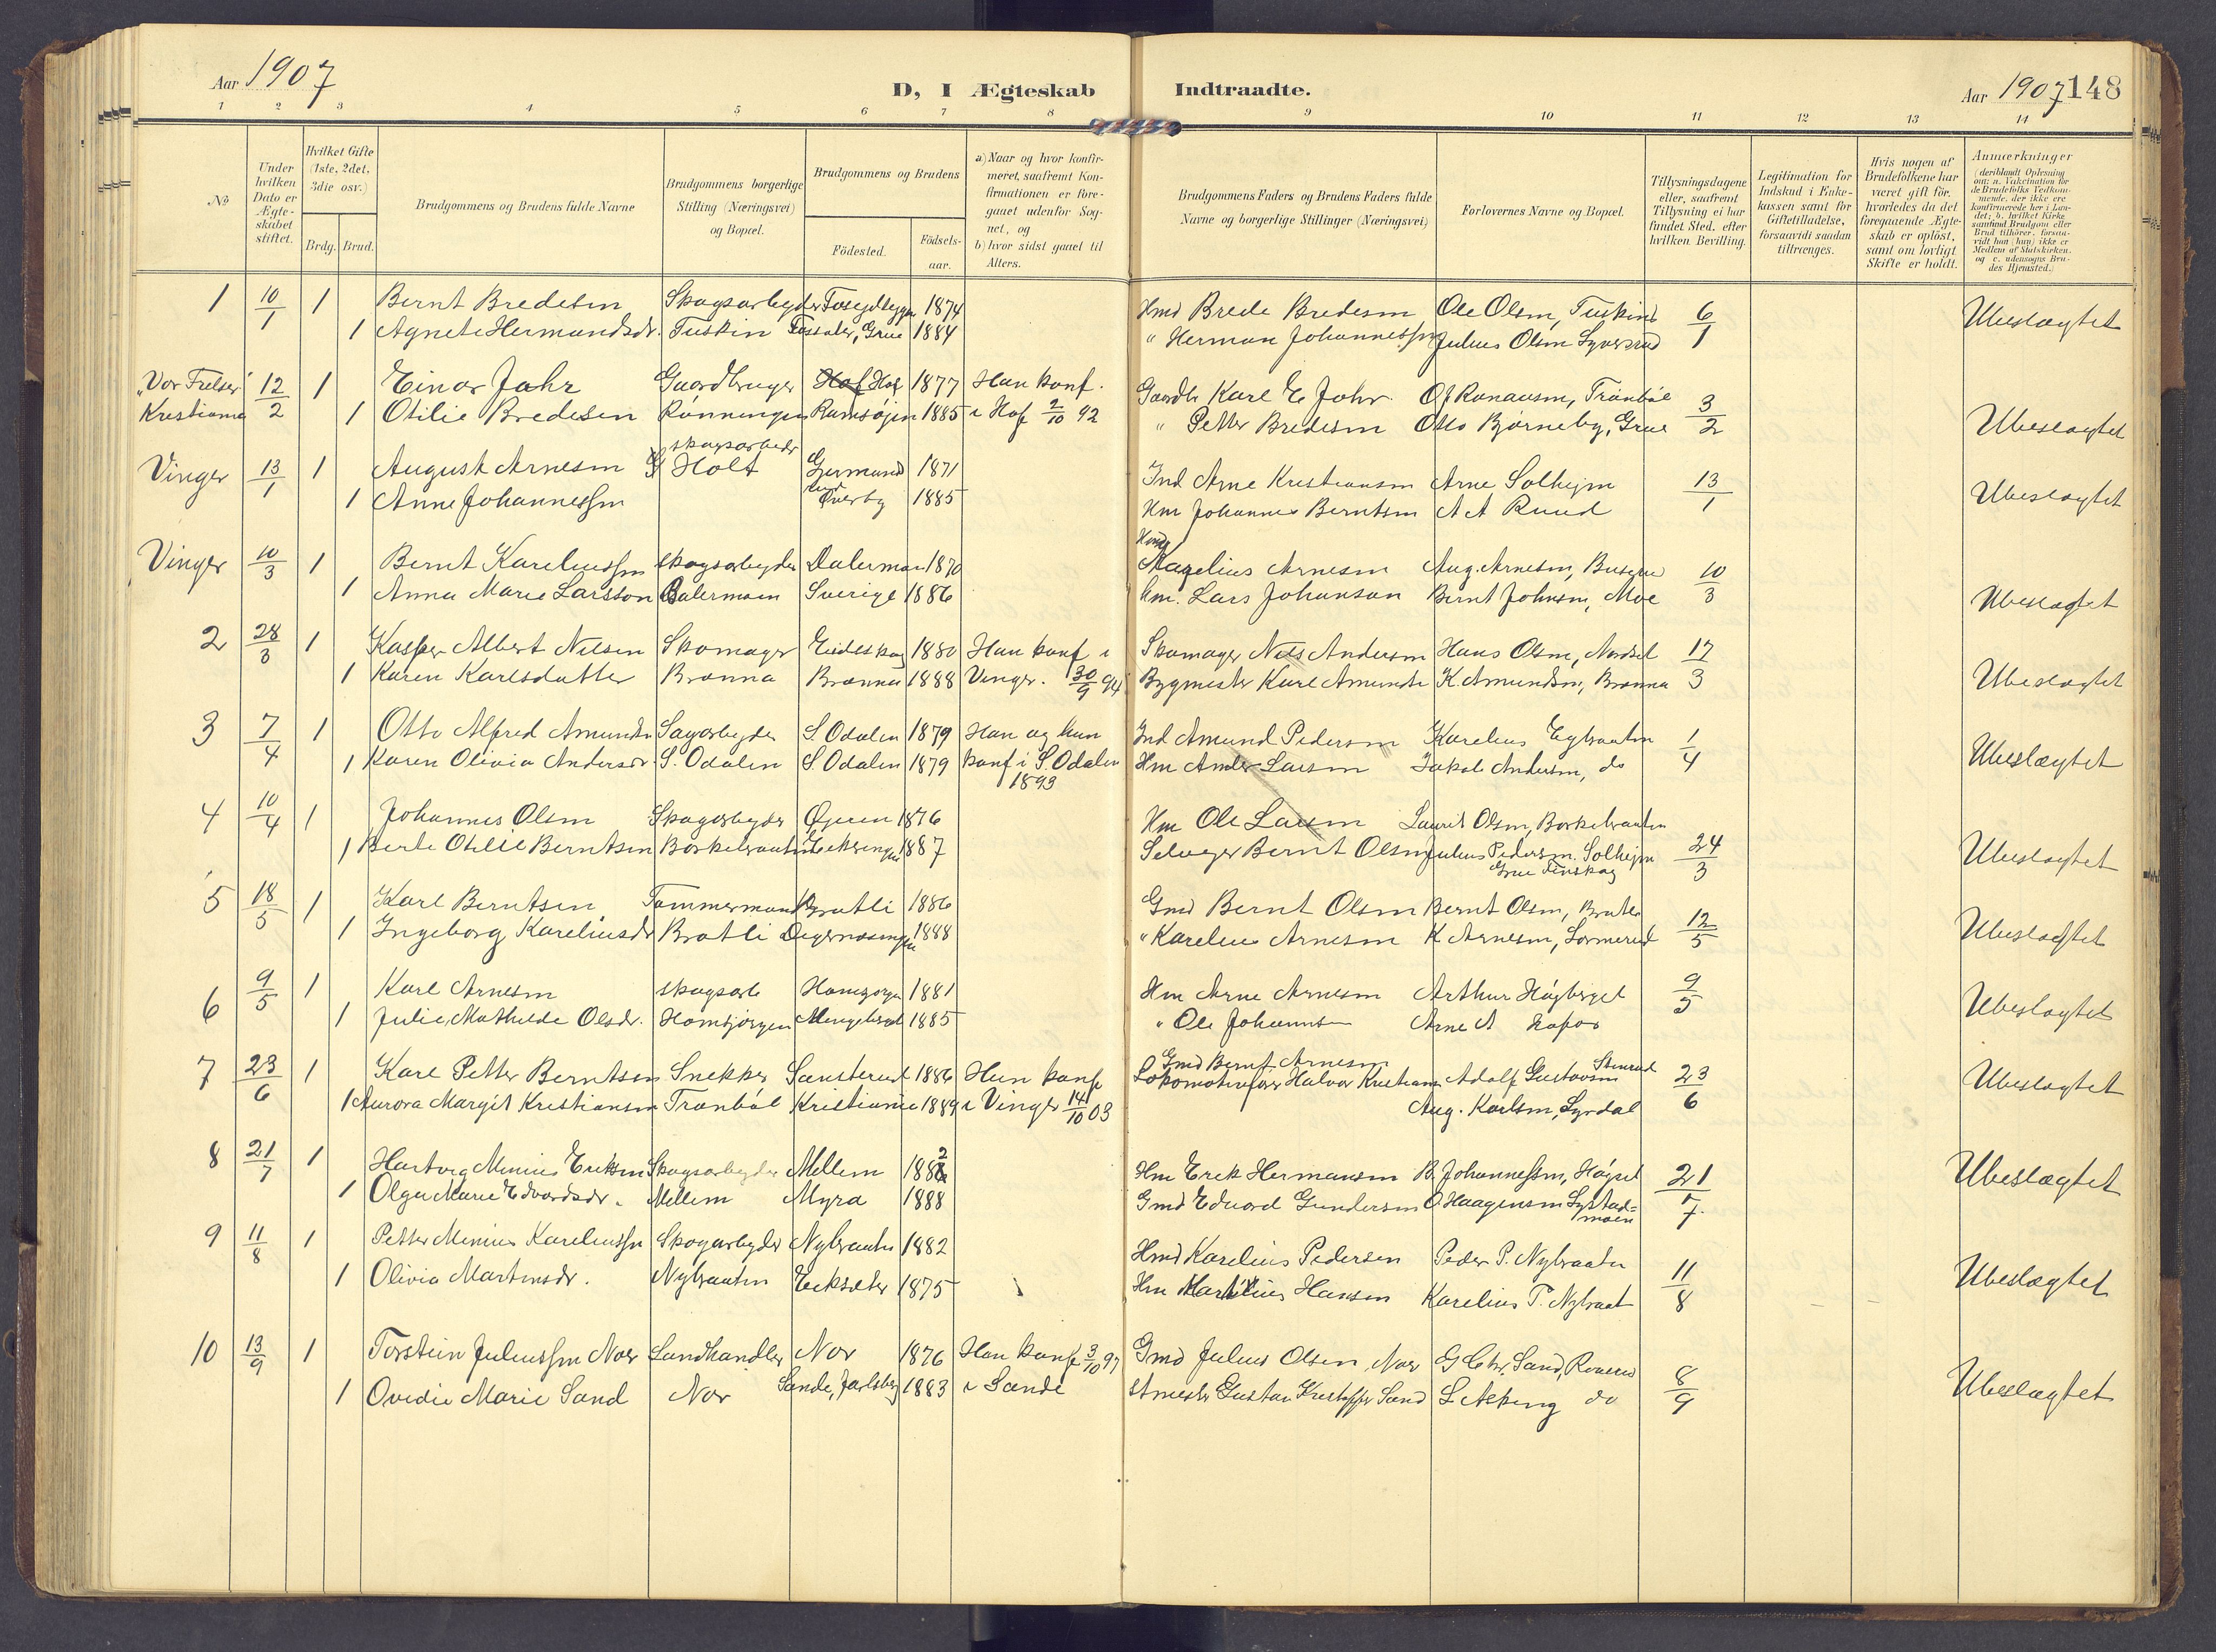 Aar 1907
D, I Ægteskab Indtraadte.
Aar 1907 148
1 2 3 4 5 6 7 8 9 10 11 12 13 14
No
Under hvilken Dato er Ægteskabet stiftet.
Hvilket Gifte (1ste, 2det, 3die osv.)
Brdg. Brud.
Brudgommens og Brudens fulde Navne
Brudgommens borgerlige Stilling (Næringsvei) og Bopæl.
Brudgommens og Brudens
Födested.
Födselsaar.
a) Naar og hvor konfirmeret, saafremt Konfirmationen er foregaaet udenfor Sognet, og
b) hvor sidst gaaet til Alters.
Brudgommens Faders og Brudens Faders fulde Navne og borgerlige Stillinger (Næringsvei)
Forlovernes Navne og Bopæl.
Tillysningsdagene eller, saafremt Tillysning ei har fundet Sted, efter hvilken Bevilling.
Legitimation for Indskud i Enkekassen samt for Giftetilladelse, forsaavidt saadan tiltrænges.
Hvis nogen af Brudefolkene har været gift för, hvorledes da det foregaaende Ægteskab er oplöst, samt om lovligt Skifte er holdt.
Anmærkninger (deriblandt Oplysning om: a. Vakcination for de Brudefolks Vedkommende, der ikke ere konfirmerede her i Landet; b. hvilket Kirkesamfund Brudgom eller Brud tilhörer, forsaavidt han (hun) ikke er Medlem af Statskirken, og c. udensogns Brudes Hjemsted.)
1 10/1 1 Bernt Bredesen Skogsarbeyder 1874 Hmd Brede Bredesen Ole Olsen, Tuskind 6/1 Ubeslægtet
1 Agnete Hermandsdr. Tuskin Grue 1884 " Herman Johannessen Julius Olsen Syversrud
"Vor Frelser" 12/2 1 Einar Jahr Gaardbruger Hof 1877 Han konf. Gaardb Karl E Jahr 3/2 Ubeslægtet
Kristiania 1 Otilie Bredesen Rønningen 1885 i Hof 2/10 92 " Petter Bredesen Otto Bjørneby, Grue
Vinger 13/1 1 August Arnesen skogsarbeder Holt 1871 Ind Arne Kristiansen Arne Solhejm 13/1 Ubeslægtet
1 Anne Johannessen Øverby 1885 Hm Johannes Berntsen A A Ruud
Vinger 10/3 1 Bernt Kareliussen skogsarbeyder Dalermoen 1870 Hmd Karelius Arnesen Aug. Arnesen 10/3 Ubeslægtet
1 Anna Marie Larsson Dalermoen Sverige 1886 Hm. Lars Johanson Bernt Johnsen, Moe
2 28/3 1 Kasper Albert Nilsen Skomager Eidskog 1880 Han konf i Skomager Nils Andersen Hans Olsen 17/3 Ubeslægtet
1 Karen Karlsdatter Brænna Brænna 1888 Vinger. 30/9 94 Bygmester Karl Amundsen K. Amundsen, Brænna
3 7/4 1 Otto Alfred Amundsen Sagarbeyder S. Odalen 1879 Han og hun Ind Amund Pedersen Karelius 1/4 Ubeslægtet
1 Karen Olivia Andersdr. S. Odalen S. Odalen 1879 konf i S. Odalen Hm Anders Larsen Jakob Andersen, do
1893
4 10/4 1 Johannes Olsen Skogarbeyder Øjeren 1876 Hm Ole Larsen Laurits Olsen, Borkebraaten
1 Berte Otilie Berntsen Borkebraaten 1887 Selveger Bernt Olsen Julius Pedersen Solhejm 24/3 Ubeslægtet
Grue Finskog
5 18/5 1 Karl Berntsen Tømmermand Bratli 1886 Gmd Bernt Olsen Bernt Olsen, Bratli 12/5 Ubeslægtet
1 Ingeborg Kareliusdr Bratli 1888 " Karelius Arnesen K Arnesen
6 9/5 1 Karl Arnesen skogsarb 1881 Hm Arne Arnesen Arthur Høgberget 9/5 Ubeslægtet
1 Julie Mathilde Olsdr. 1885 " Ole Johannesen Arne A
7 23/6 1 Karl Petter Berntsen Snekker 1886 Hun konf Gmd Bernt Arnesen Adolf Gustavsen Stenrud 23/6 Ubeslægtet
1 Aurora Margit Kristiansen Trønbøl Kristiania 1889 i Vinger 14/10 03 Lokomotivfører Halvor Kristiansen Aug. Karlsen, Lyrdal
8 21/7 1 Hartvig Minius Eriksen Skogsarbeyder Mellem 1882 Hm Erik Hermansen B. Johannessen 21/7 Ubeslægtet
1 Olga Marie Edvardsdr. Mellem Myra 1888 Gmd Edvard Gundersen O Haagensen Systadmoen
9 11/8 1 Petter Minius Kareliussen Skogarbeyder Nybraaten 1882 Hmd Karelius Pedersen Peder P. Nybraaten 11/8 Ubeslægtet
1 Olivia Martinsdr. Nybraaten Eeksæter 1875 Hm Martinius Hansen Karelius P. Nybraat
10 13/9 1 Torstein Juliussen Noer Landhandler Nor 1876 Han konf 3/10 97 Gmd Julius Olsen Noer G Chr. Sand 8/9 Ubeslægtet
1 Ovidie Marie Sand Nor Sande, Jarlsberg 1883 i Sande Gustav Kristoffer Sand L Asking do